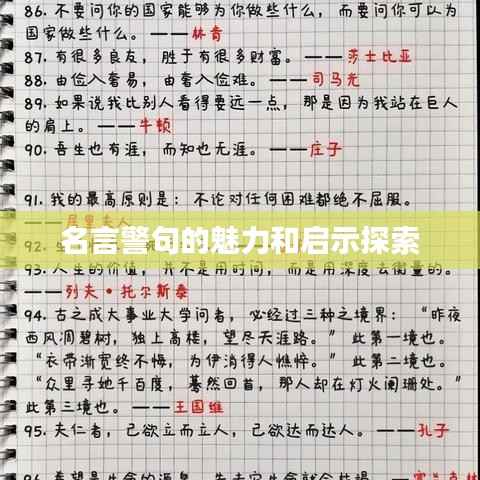 86. 不要问你的国家能够为你做些什么,而要问你可以为
国家做些什么。——林肯
87. 有很多良友,胜于有很多财富。——莎士比亚
88. 由俭入奢易,由奢入俭难。——司马光
89. 如果说我比别人看得要远一点,那是因为我站在巨人
的肩上。——牛顿
90. 吾生也有涯,而知也无涯。——庄子
91. 我的最高原则是:不论对任何困难都绝不屈服。
——居里夫人
92.
名言警句的魅力和启示探索
93. 人生的价值,并不是用时间,而是用深度去衡量的。
——列夫·托尔斯泰
94. 古之成大事业大学问者,必经过三种之境界:“昨夜
西风凋碧树,独上高楼,望尽天涯路。”此第一境也。
“衣带渐宽终不悔,为伊消得人憔悴。”此第二境也。
“众里寻她千百度,蓦然回首,那人却在灯火阑珊处。”
此第三境也。——王国维
95. 夫仁者,己欲立而立人,己欲达而达人。——孔子